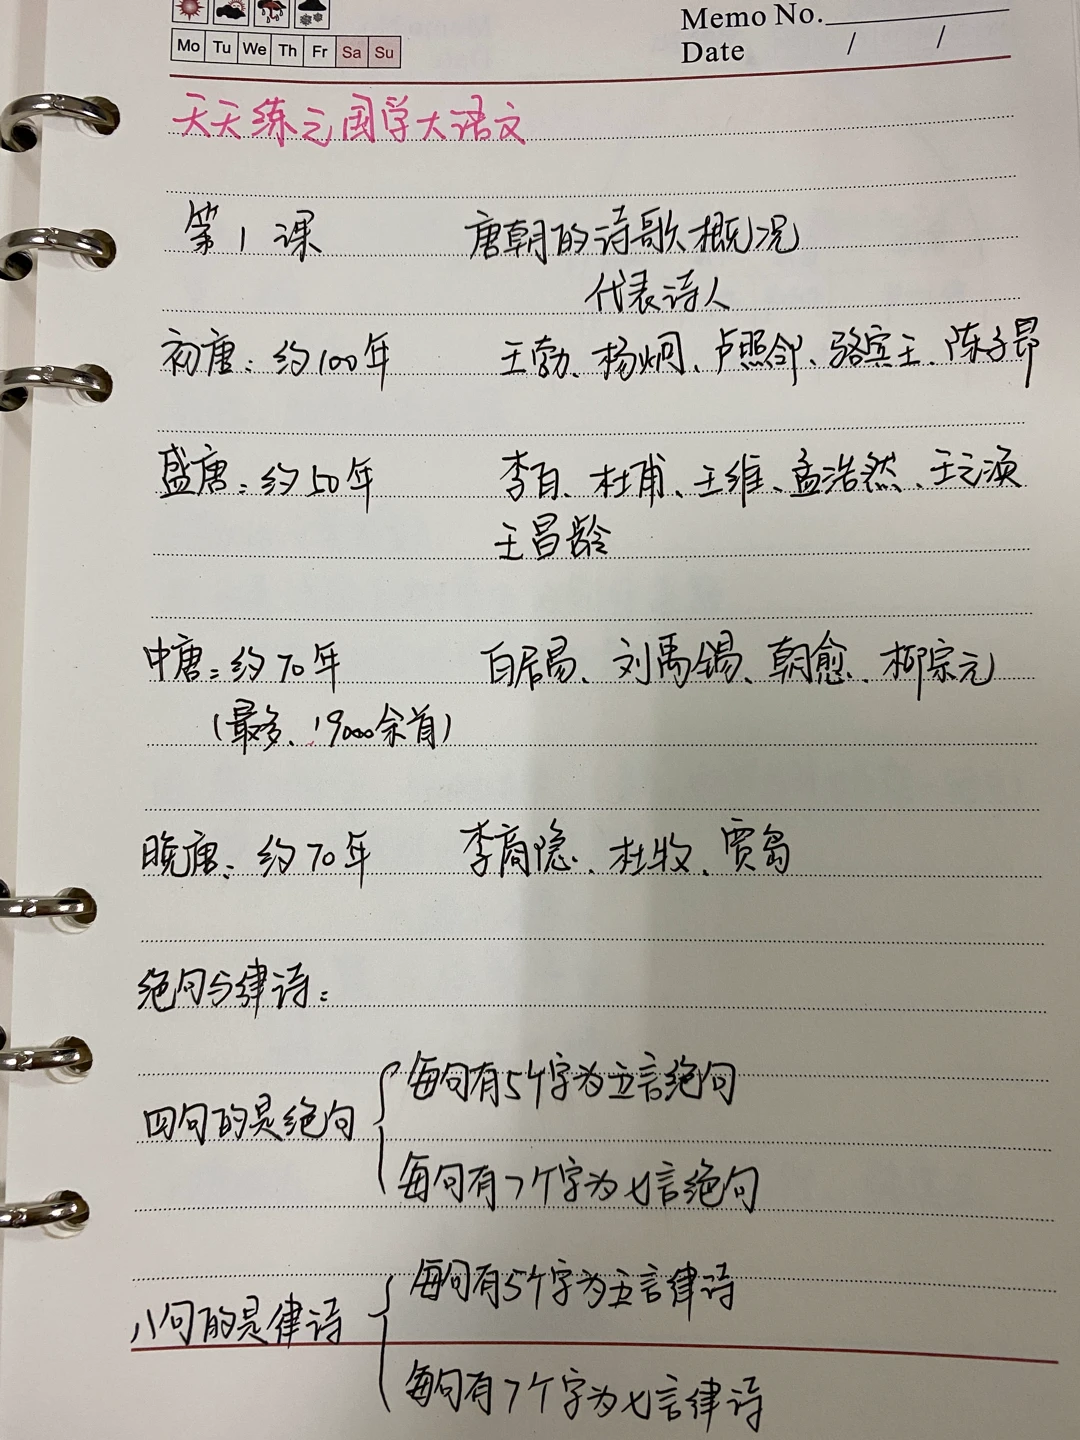 Memo No.
Mo Tu We Th Fr Sa Su
Date / /
天天练之国学大语文
第1课 唐朝的诗歌概况
代表诗人
初唐：约100年 王勃、杨炯、卢照邻、骆宾王、陈子昂
盛唐：约50年 李白、杜甫、王维、孟浩然、王之涣
王昌龄
中唐：约70年 白居易、刘禹锡、韩愈、柳宗元
（最多、19000余首）
晚唐：约70年 李商隐、杜牧、贾岛
绝句与律诗：
每句有5个字为五言绝句
四句的是绝句
每句有7个字为七言绝句
每句有5个字为五言律诗
八句的是律诗
每句有7个字为七言律诗